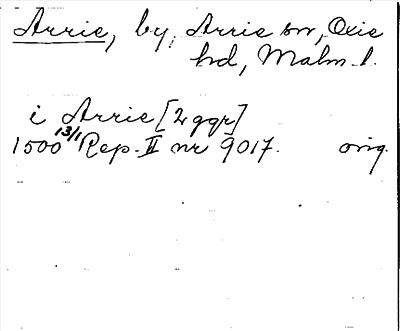 Arrie, by, Arrie sn, Oxie
hd, Malm. l.
i Arrie [2 ggr]
1500 13/1 Rep. II nr 9017. orig.